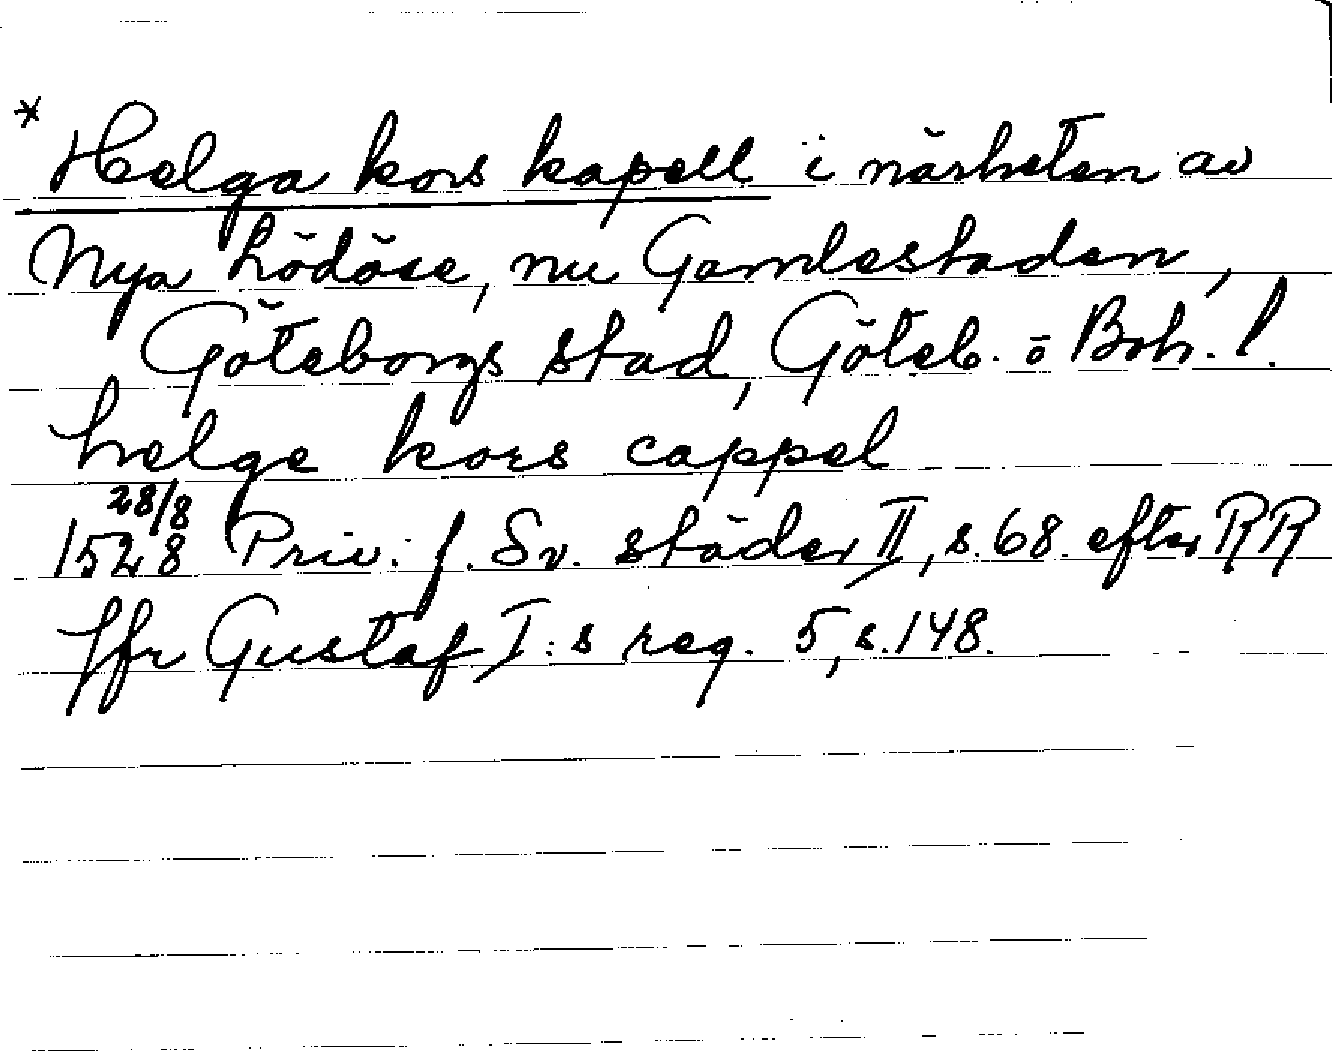 * Helga kors kapell i närheten av
Nya Lödöse, nu Gamlestaden,
Göteborgs stad, Göteb. o Boh. l.
helge kors cappel
28/8
1528 Priv. f. Sv. städer II, s. 68. efter RR
Jfr Gustaf I:s reg. 5, s. 148.